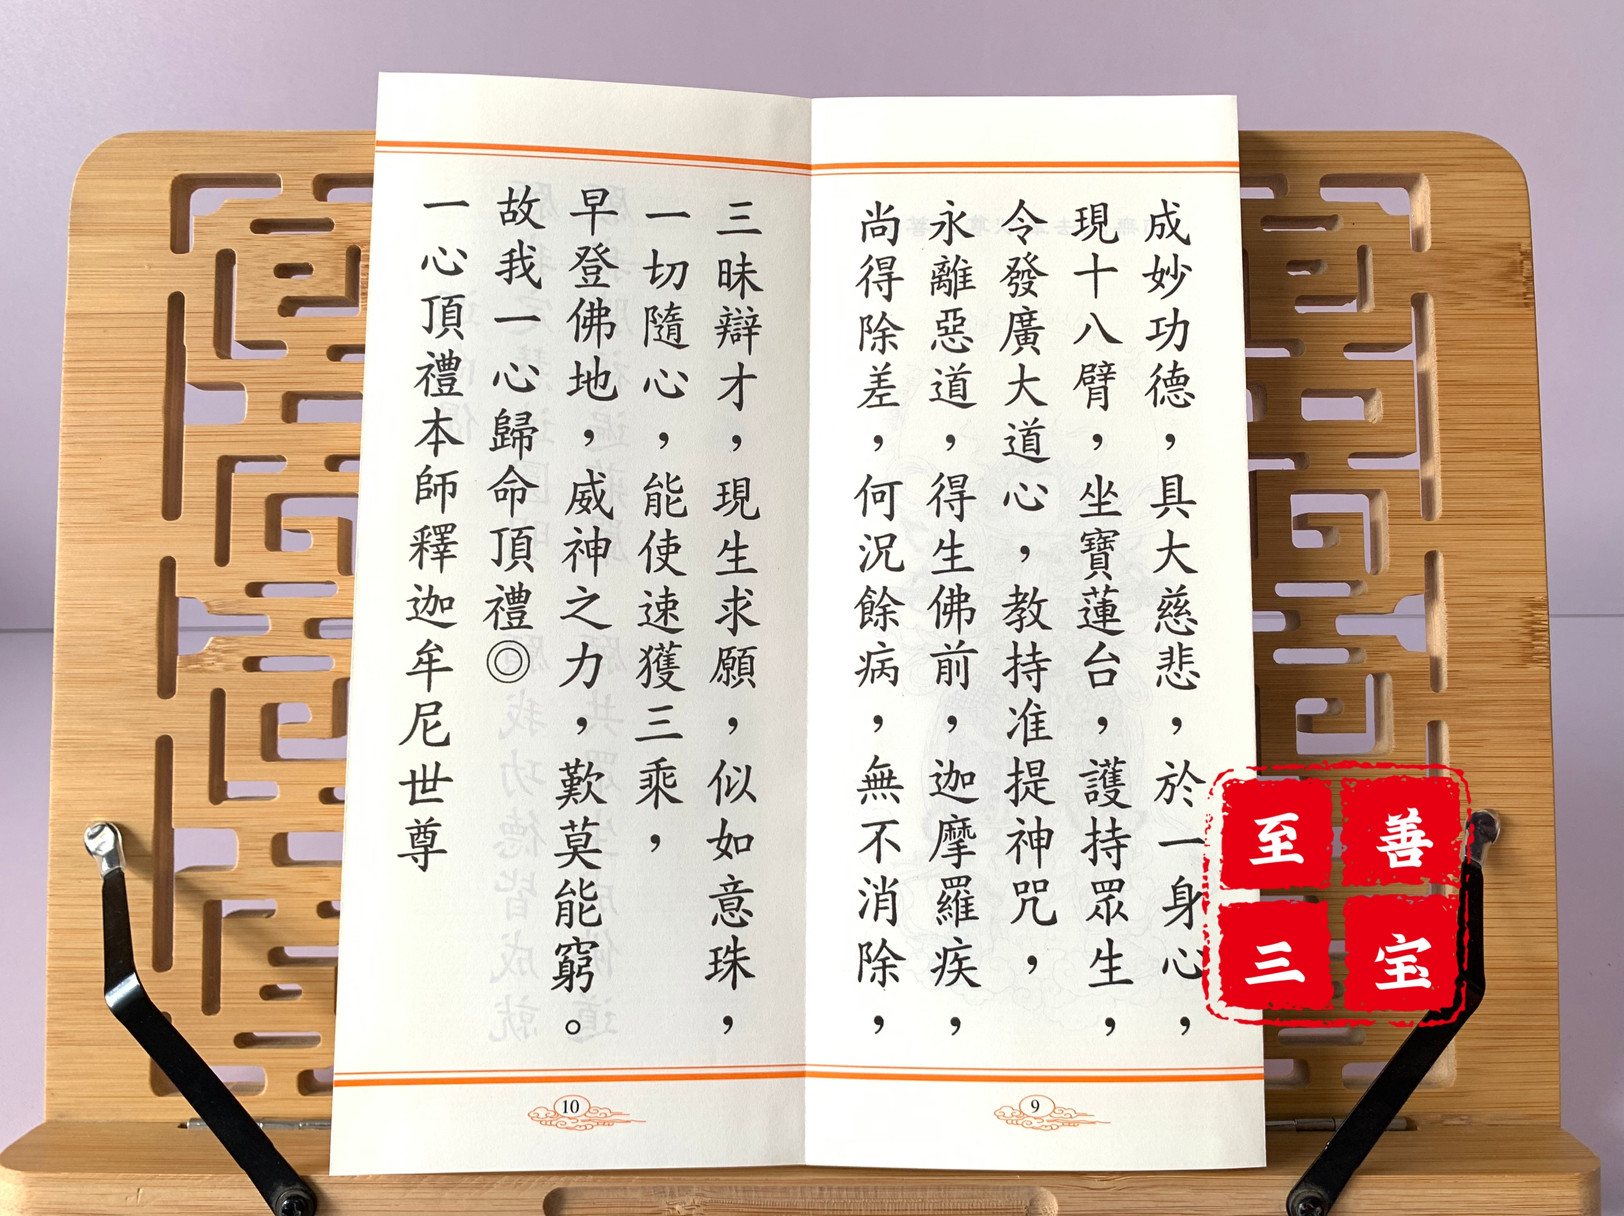 成妙功德，具大慈悲，於一身心，
現十八臂，坐寶蓮台，護持眾生，
令發廣大道心，教持准提神咒，
永離惡道，得生佛前，迦摩羅疾，
尚得除差，何況餘病，無不消除，
9
三昧辯才，現生求願，似如意珠，
一切隨心，能使速獲三乘，
早登佛地，威神之力，歎莫能窮。
故我一心歸命頂禮◎
一心頂禮本師釋迦牟尼世尊
10
至善
三宝